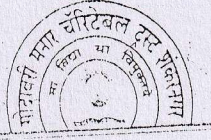 गोदावरी मनार चॅरिटेबल ट्रस्ट शंकरनगर
सा विद्या या विमुक्तये